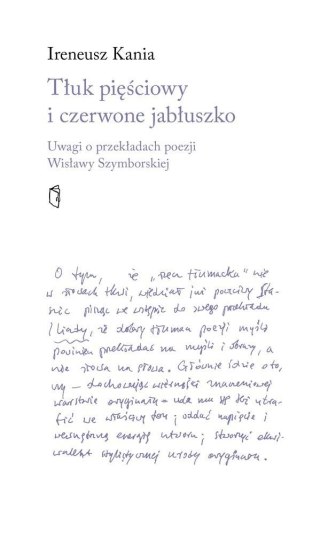 Ireneusz Kania
Tłuk pięściowy
i czerwone jabłuszko
Uwagi o przekładach poezji
Wisławy Szymborskiej
O tym, że „rzecz tłumacka” nie
w słowach tkwi, wiedział już poczciwy Sta-
szic pisząc we wstępie do swego przekładu
Iliady, iż dobry tłumacz poezji myśli
powinien przekładać na myśli i obrazy, a
nie słowa na słowa. Głównie idzie o to,
by – dochowując wierności znaczeniowej
warstwie oryginału – uda mu się też utra-
fić we właściwy ton; oddać napięcie i
wewnętrzną energię utworu; stworzyć ekwi-
walent stylistycznej urody oryginału.